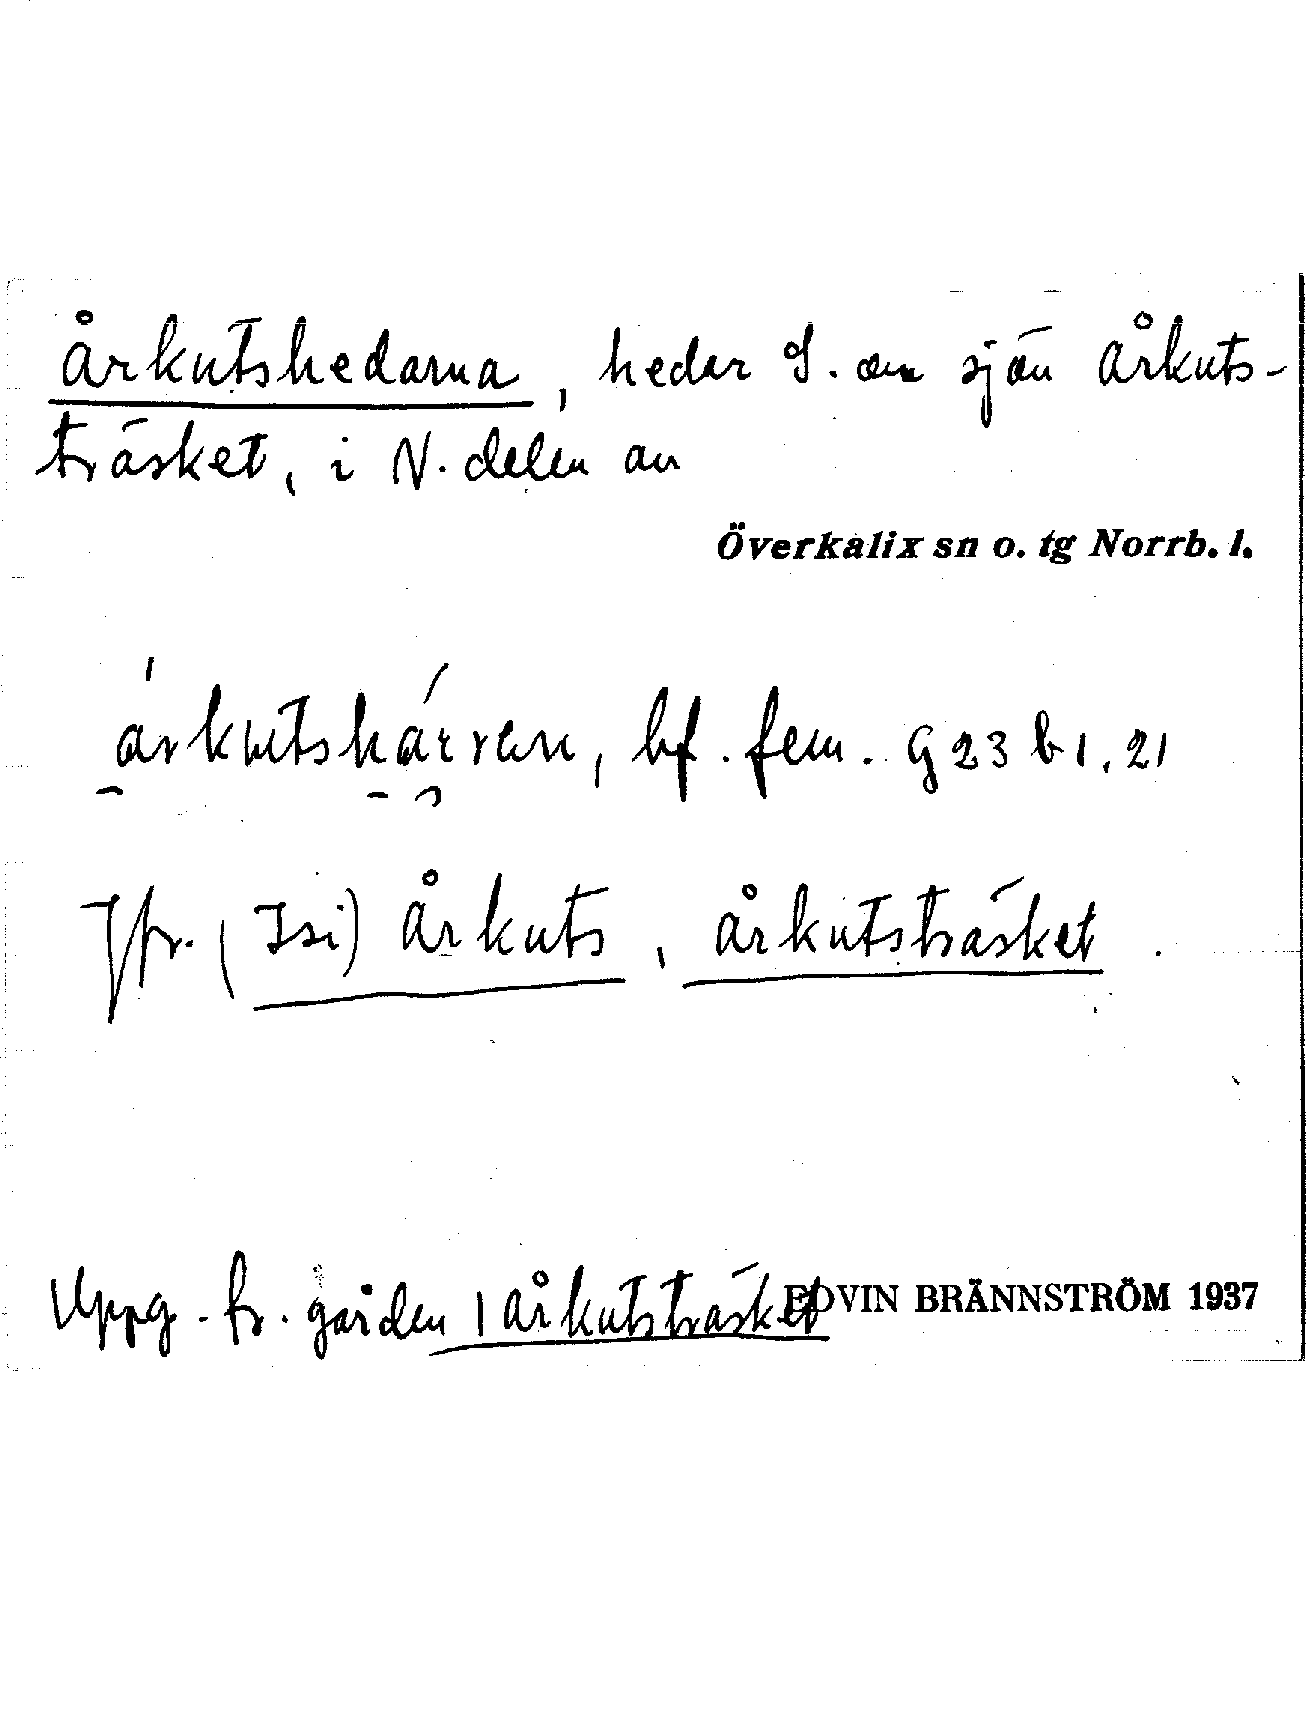 Årkutshedarna, hedar S. om sjön Årkuts-
träsket, i N. delen av
Överkalix sn o. tg Norrb. l.
bf. fem. G 23 b 1, 21
Jfr. (Isi) Årkuts, Årkutsträsket.
Uppg. fr. gården i Årkutsträsket EDVIN BRÄNNSTRÖM 1937